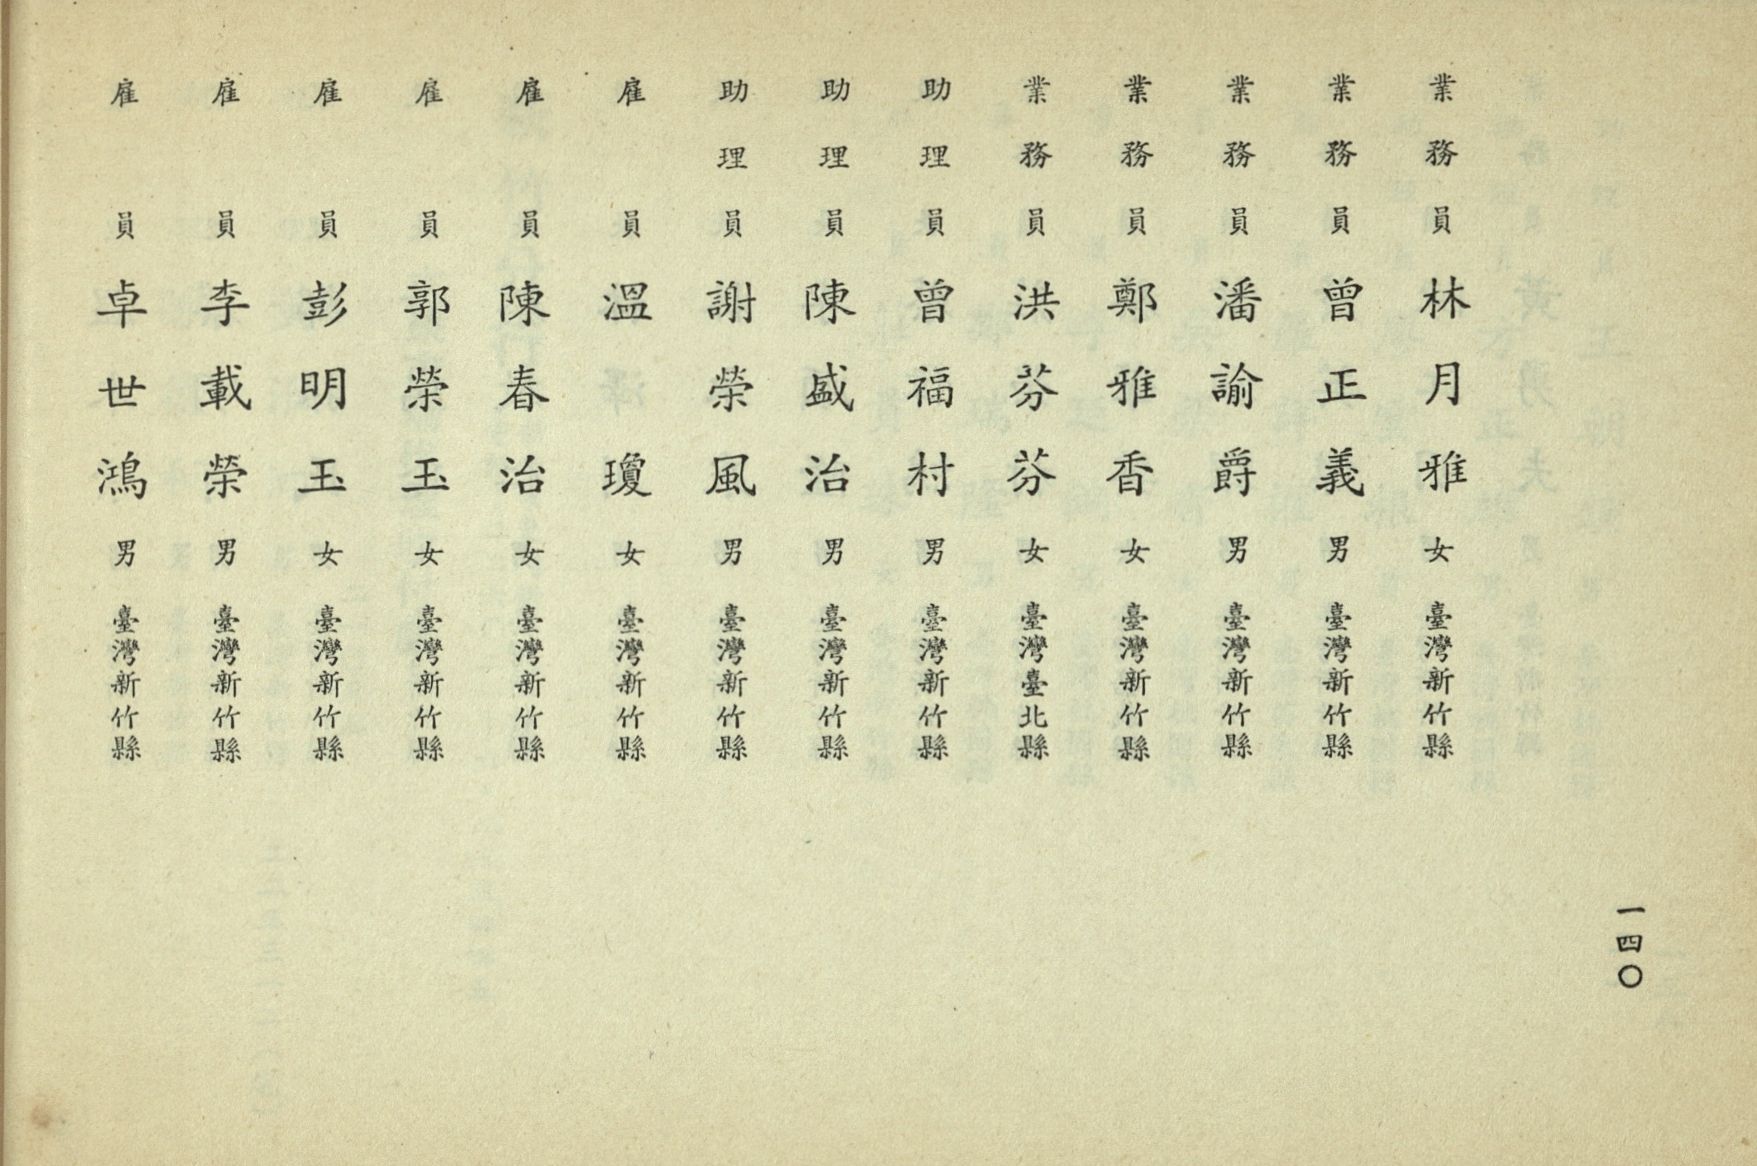 一四〇
業務員林月雅女臺灣新竹縣
業務員曾正義男臺灣新竹縣
業務員潘諭爵男臺灣新竹縣
業務員鄭雅香女臺灣新竹縣
業務員洪芬芬女臺灣臺北縣
助理員曾福村男臺灣新竹縣
助理員陳盛治男臺灣新竹縣
助理員謝榮風男臺灣新竹縣
雇員溫瓊女臺灣新竹縣
雇員陳春治女臺灣新竹縣
雇員郭榮玉女臺灣新竹縣
雇員彭明玉女臺灣新竹縣
雇員李載榮男臺灣新竹縣
雇員卓世鴻男臺灣新竹縣